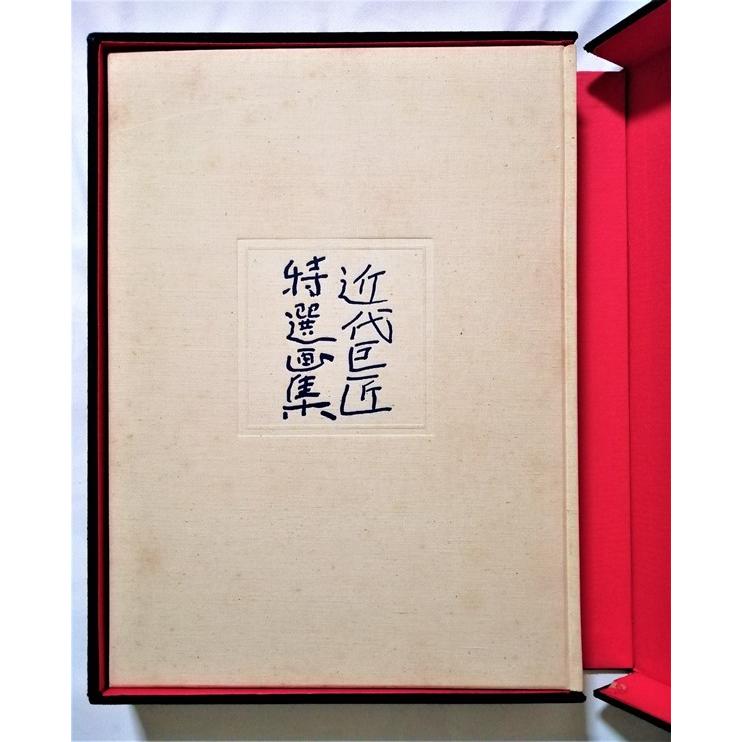 近代巨匠
特選画集